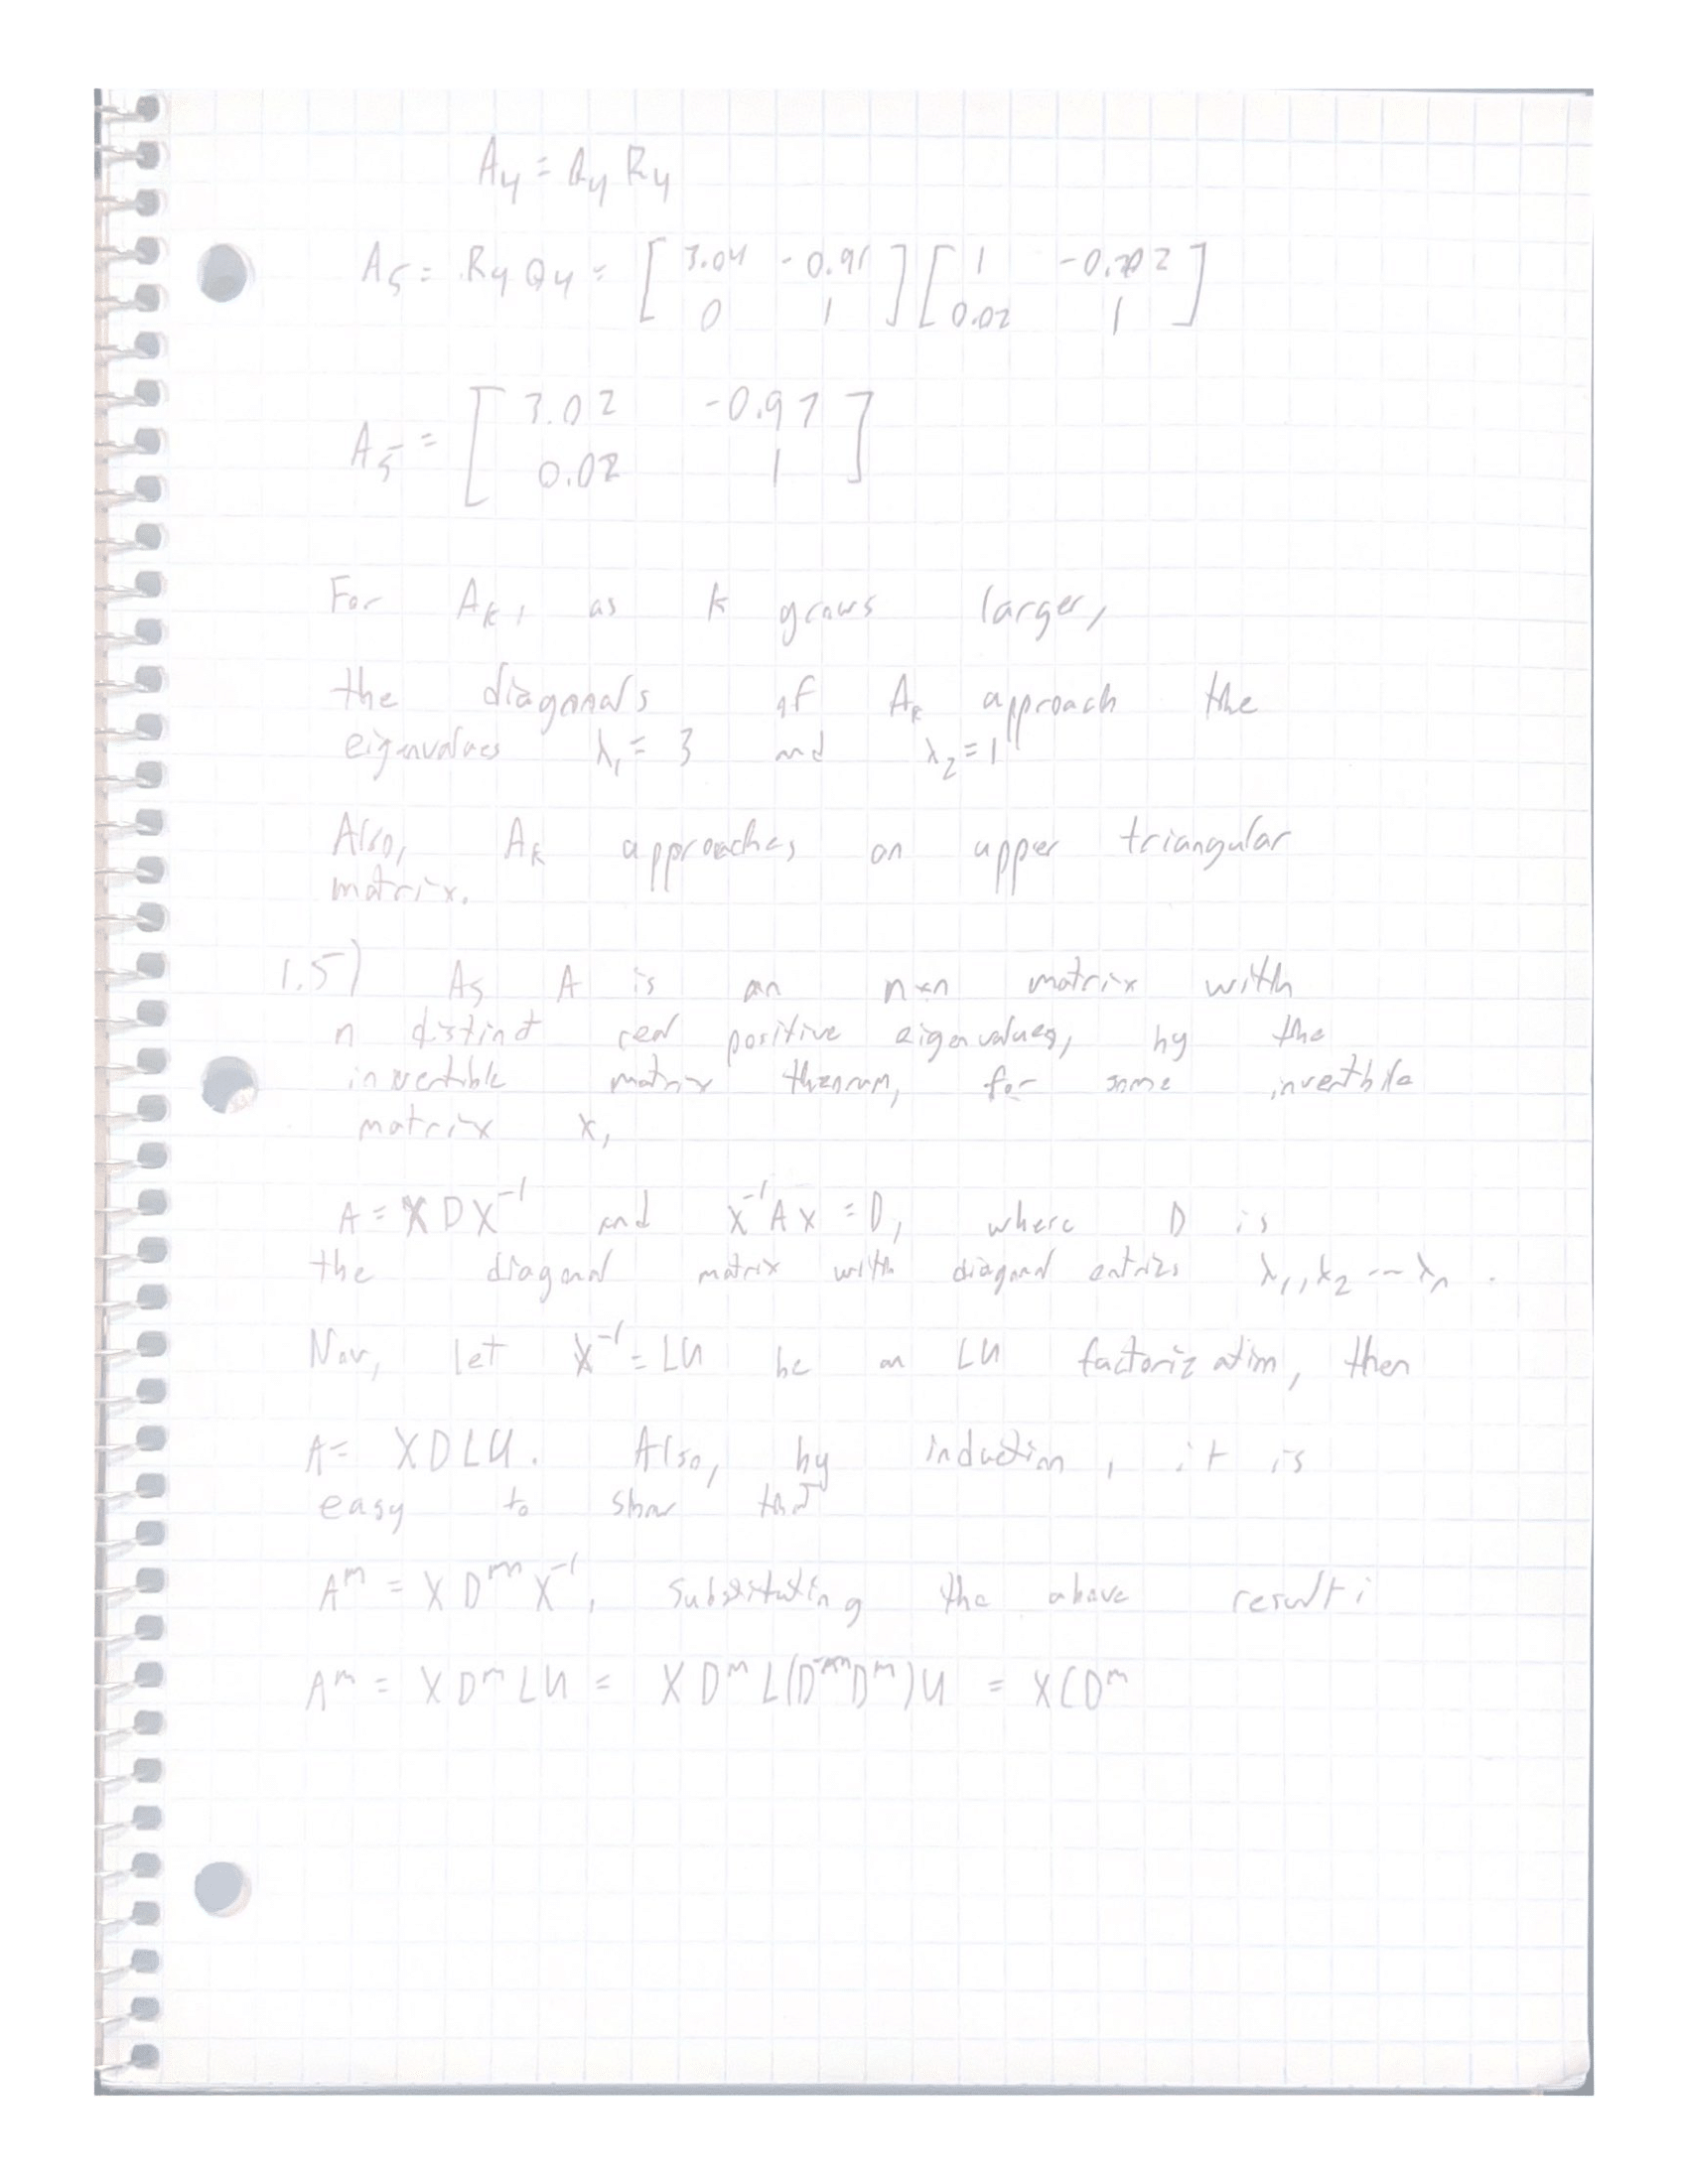 A₄ = Q₄ R₄
A₅ = R₄ Q₄ = [ 3.04 -0.91 ] [ 1 -0.02 ]
0 1 0.02 1
A₅ = [ 3.02 -0.97 ]
0.02 1
For Aₖ, as k grows larger,
the diagonals of Aₖ approach the
eigenvalues λ₁ = 3 and λ₂ = 1
Also, Aₖ approaches an upper triangular
matrix.
1.5) As A is an n×n matrix with
n distinct real positive eigenvalues, by the
invertible matrix theorem, for some invertible
matrix X,
A = X D X⁻¹ and X⁻¹ A X = D, where D is
the diagonal matrix with diagonal entries λ₁, λ₂ --- λₙ.
Now, let X⁻¹ = LU be an LU factorization, then
A = XDLU. Also, by induction, it is
easy to show that
Aᵐ = X Dᵐ X⁻¹, Substituting the above result:
Aᵐ = X Dᵐ LU = X Dᵐ L(D⁻ᵐDᵐ)U = X(Dᵐ